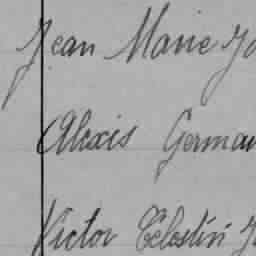 Jean Marie
Alexis Germai
Victor Célestin